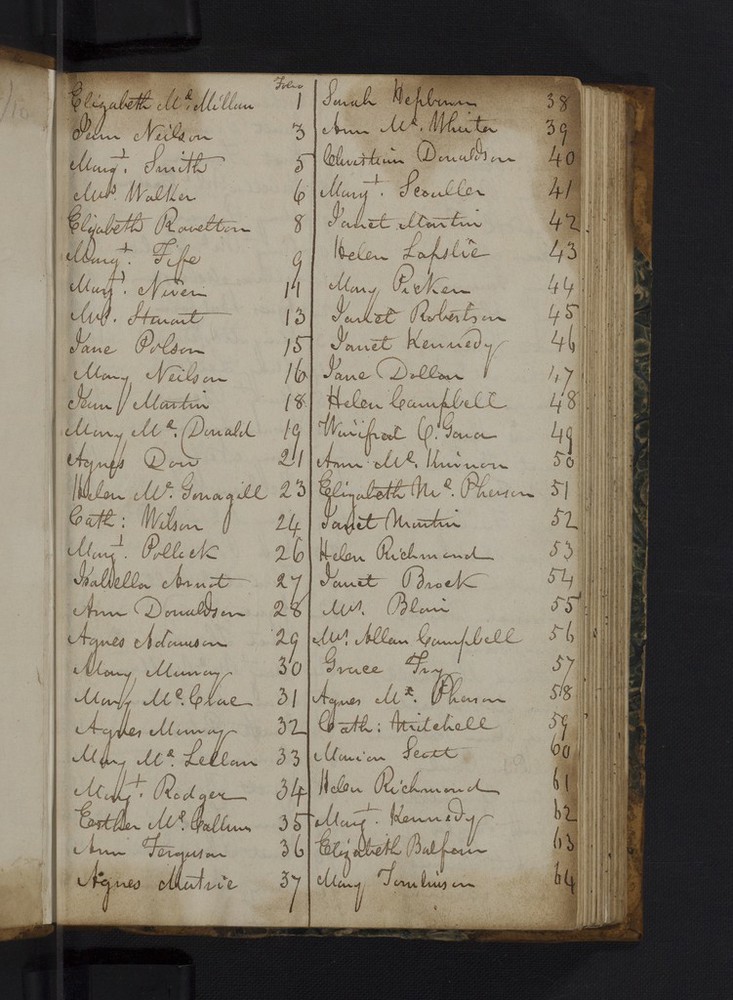 Folio
Elizabeth Mc. Millan 1
Jean Neilson 3
Margt. Smith 5
Mrs Walker 6
Elizabeth Rovelton 8
Margt. Fife 9
Margt. Niven 11
Mrs. Stewart 13
Jane Polson 15
Mary Neilson 16
Jean Martin 18
Mary Mc. Donald 19
Agnes Don 21
Helen Mc. Gonagill 23
Cath: Wilson 24
Margt. Pollock 26
Isabella Arnot 27
Ann Donaldson 28
Agnes Adamson 29
Mary Murray 30
Mary Mc. Crae 31
Agnes Murray 32
Mary Mc. Lellan 33
Margt. Rodger 34
Esther Mc. Callum 35
Ann Ferguson 36
Agnes Mutrie 37
Sarah Hepburn 38
Ann Mc. Whirter 39
Christian Donaldson 40
Margt. Scouller 41
Janet Martin 42
Helen Lapslie 43
Mary Picken 44
Janet Robertson 45
Janet Kennedy 46
Jane Dollan 47
Helen Campbell 48
Winifred 49
Ann Mc. Kinnon 50
Elizabeth Mc. Pherson 51
Janet Martin 52
Helen Richmond 53
Janet Brock 54
Mrs. Blair 55
Mrs. Allan Campbell 56
Grace Fry 57
Agnes Mc. Pherson 58
Cath: Mitchell 59
Marion Scott 60
Helen Richmond 61
Margt. Kennedy 62
Elizabeth Balfour 63
Mary Tomlinson 64